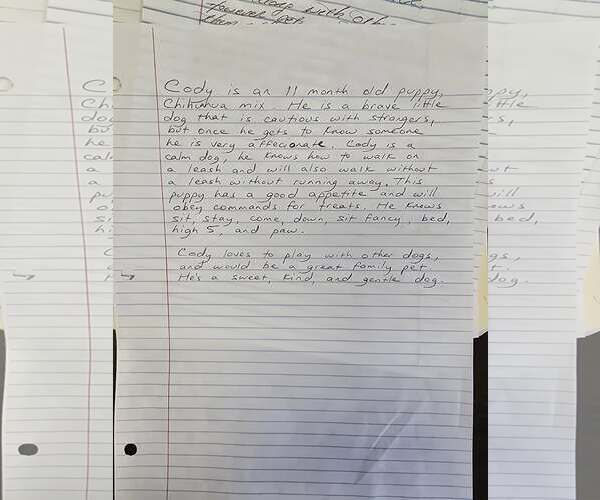 Cody is an 11 month old puppy,
Chihuhua mix. He is a brave little
dog that is cautious with strangers,
but once he gets to know someone
he is very affecionate. Cody is a
calm dog, he knows how to walk on
a leash and will also walk without
a leash without running away. This
puppy has a good appetite and will
obey commands for treats. He knows
sit, stay, come, down, sit fancy, bed,
high 5, and paw.
Cody loves to play with other dogs,
and would be a great family pet.
He's a sweet, kind, and gentle dog.